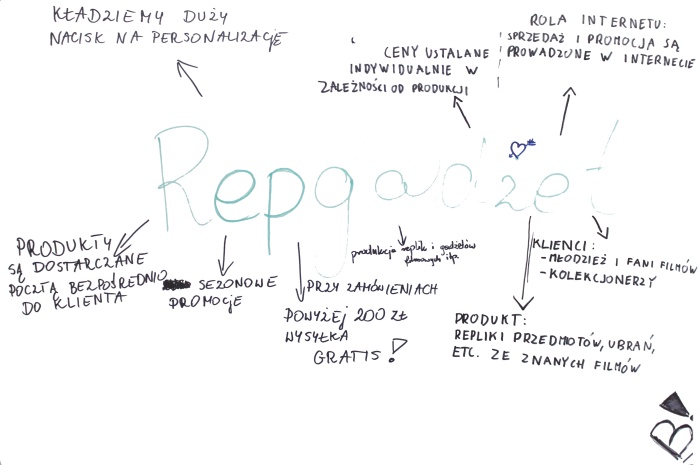 KŁADZIEMY DUŻY
NACISK NA PERSONALIZACJĘ
CENY USTALANE
INDYWIDUALNIE W
ZALEŻNOŚCI OD PRODUKCJI
ROLA INTERNETU:
SPRZEDAŻ I PROMOCJA SĄ
PROWADZONE W INTERNECIE
Repgadżet
PRODUKTY
SĄ DOSTARCZANE
POCZTĄ BEZPOŚREDNIO
DO KLIENTA
SEZONOWE
PROMOCJE
PRZY ZAMÓWIENIACH
POWYŻEJ 200 ZŁ
WYSYŁKA
GRATIS!
produkcja replik i gadżetów
filmowych itp.
KLIENCI:
- MŁODZIEŻ I FANI FILMÓW
- KOLEKCJONERZY
PRODUKT:
REPLIKI PRZEDMOTÓW, UBRAŃ,
ETC. ZE ZNANYCH FILMÓW
B